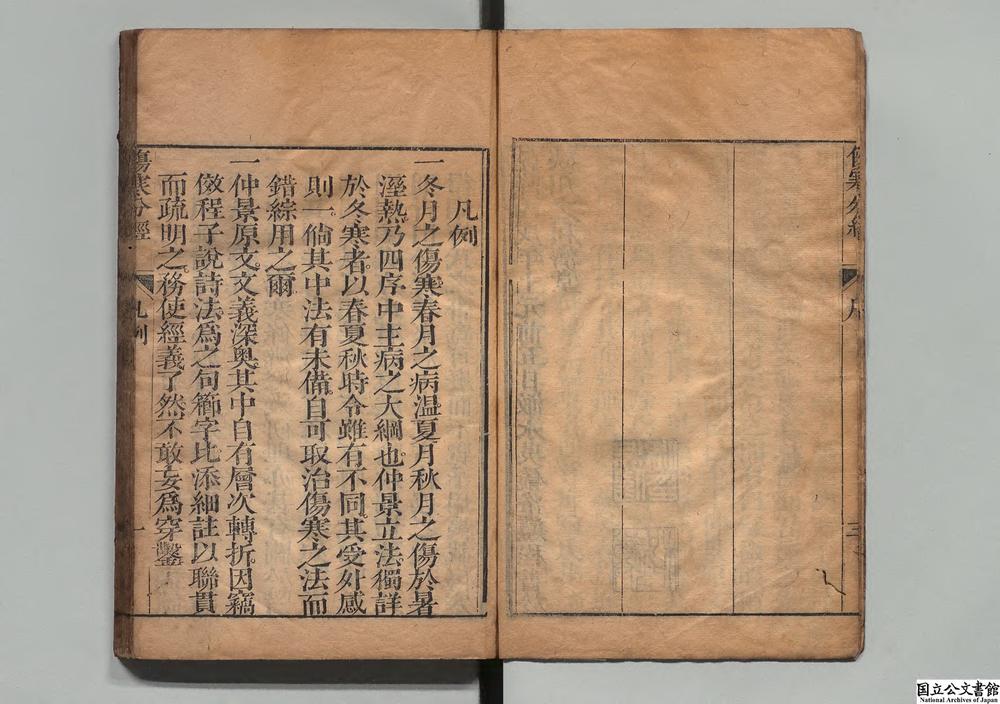 傷寒分經
序
三
凡例
一冬月之傷寒春月之病溫夏月秋月之傷於暑
溼熱乃四序中主病之大綱也仲景立法獨詳
於冬寒者以春夏秋時令雖有不同其受外感
則一倘其中法有未備自可取治傷寒之法而
錯綜用之爾
一仲景原文文義深奧其中自有層次轉折因竊
倣程子說詩法爲之句櫛字比添細註以聯貫
而疏明之務使經義了然不敢妄爲穿鑿
傷寒分經
凡例
一
国立公文書館
National Archives of Japan